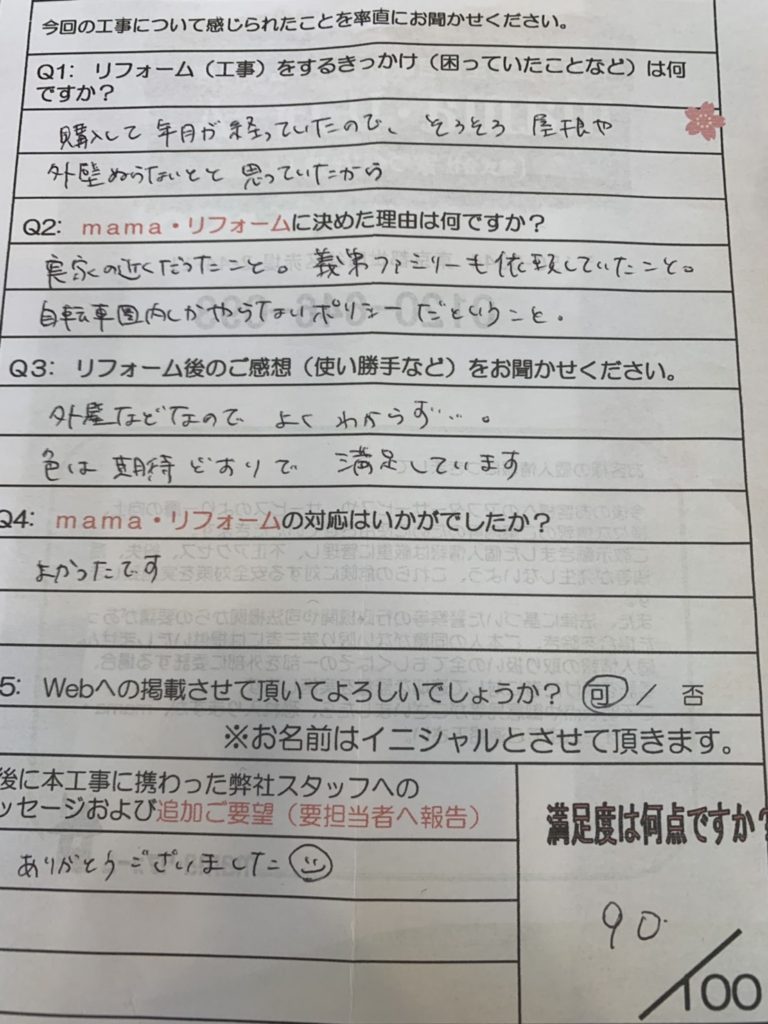 今回の工事について感じられたことを率直にお聞かせください。
Q1: リフォーム（工事）をするきっかけ（困っていたことなど）は何
ですか？
購入して年月が経っていたので、そろそろ屋根や
外壁ぬらないとと思っていたから
Q2: mama・リフォームに決めた理由は何ですか？
実家の近くだったこと。義弟ファミリーも依頼していたこと。
自転車圏内しかやらないポリシーだということ。
Q3: リフォーム後のご感想（使い勝手など）をお聞かせください。
外壁などなので よくわからず…。
色は期待どおりで 満足しています
Q4: mama・リフォームの対応はいかがでしたか？
よかったです
5: Webへの掲載させて頂いてよろしいでしょうか？ 可 / 否
※お名前はイニシャルとさせて頂きます。
後に本工事に携わった弊社スタッフへの
ッセージおよび追加ご要望（要担当者へ報告）
ありがとうございました
満足度は何点ですか？
90
/100